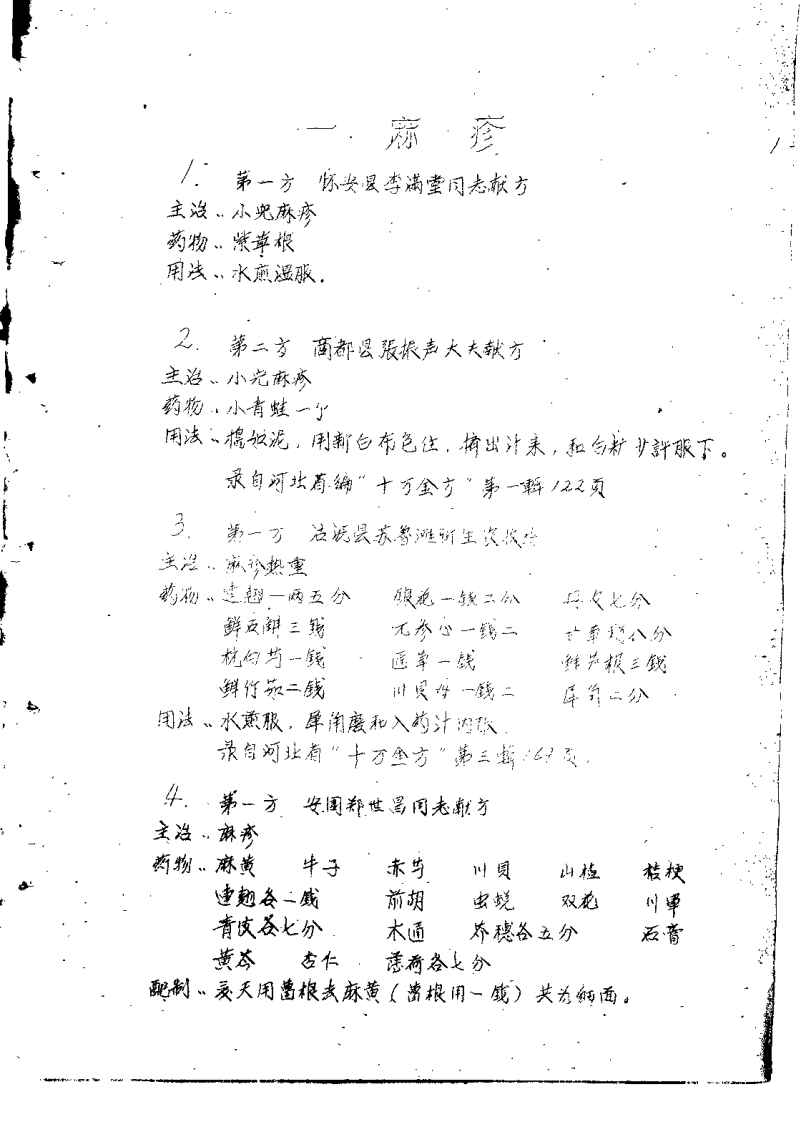 一 麻疹
1. 第一方 怀安县李满堂同志献方
主治：小児麻疹
药物：紫草根
用法：水煎温服．
2. 第二方 商都县張振声大夫献方
主治：小児麻疹
药物：小青蛙一个
用法：搗如泥，用新白布包住，擠出汁来，和白糖少許服下。
录自河北省編“十万金方”第一輯122页
3. 第一方 沽沅县苏鲁滩
主治：麻疹热重
药物：連翹一两五分 银花一钱二分 七分
鲜 三钱 元参心一钱二 八分
杭白芍一钱 一钱 鲜芦根三钱
鲜竹茹二钱 川贝母一钱二 犀角二分
用法：水煎服，犀角磨和入药汁内服
录自河北省“十万金方”第三輯 页．
4. 第一方 安国郑世昌同志献方
主治：麻疹
药物：麻黄 牛子 赤芍 川貝 山楂 桔梗
連翹各一钱 前胡 虫蜕 双花 川軍
青皮各七分 木通 芥穗各五分 石膏
黄芩 杏仁 薄荷各七分
配制：夏天用葛根去麻黄（葛根用一钱）共为細面。